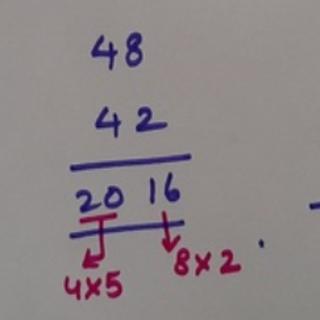 48
42
20 16
4x5 8x2.